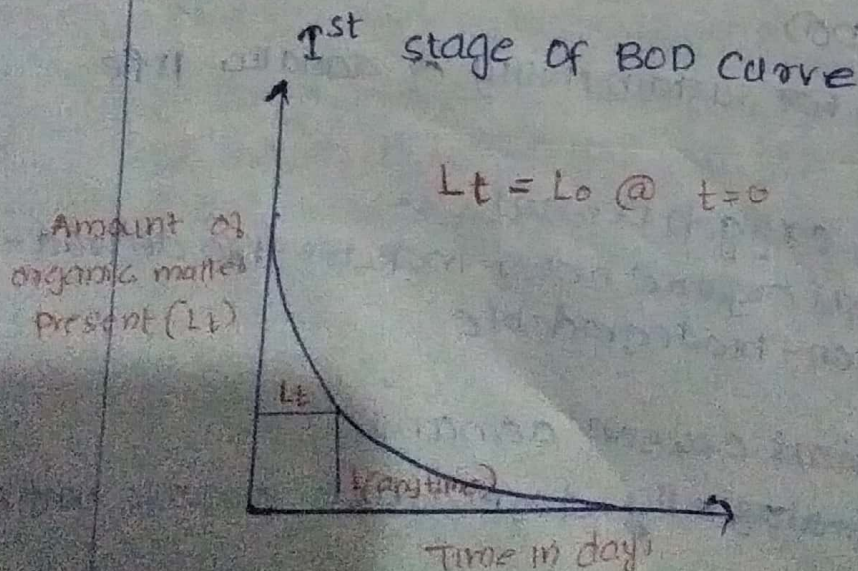 Ist stage of BOD Curve
Lt = Lo @ t=0
Amount of
organic matter
present (Lt)
Lt
t(anytime)
Time in days